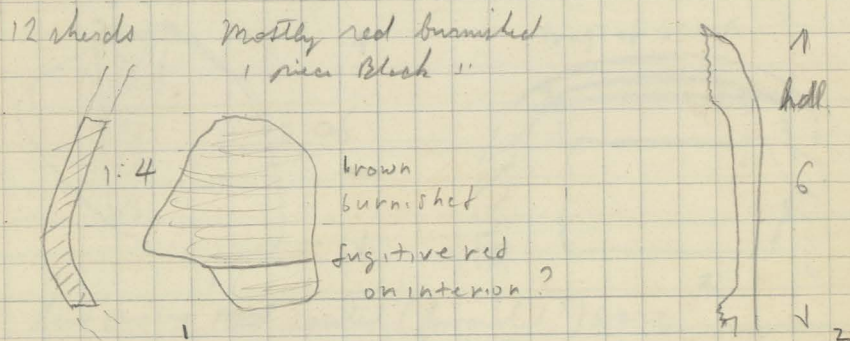 12 sherds Mostly red burnished
1 piece Black "
1:4
brown
burnished
fugitive red
on interior?
1
6
2